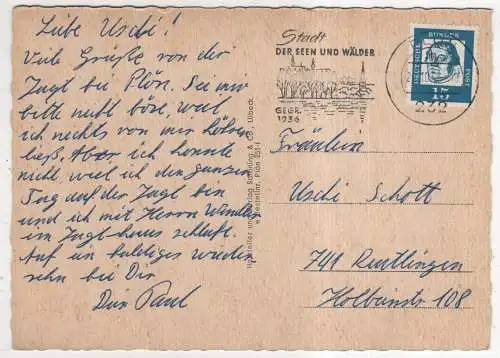 Liebe Uschi!
Viele Grüße von der
Jagt bei Plön. Sei mir
bitte nicht böse, weil
ich nichts von mir hören
ließ. Aber ich konnte
nicht, weil ich den ganzen
Tag auf der Jagt bin
und ich mit Herrn
im Jagthaus schlaft.
Auf ein baldiges wieder
sehn bei Dir
Dein Paul
Stadt
DER SEEN UND WÄLDER
GEGR.
1236
232
DEUTSCHE BUNDESPOST
15
Fräulein
Uschi Schott
741 Reutlingen
Holbeinstr 108